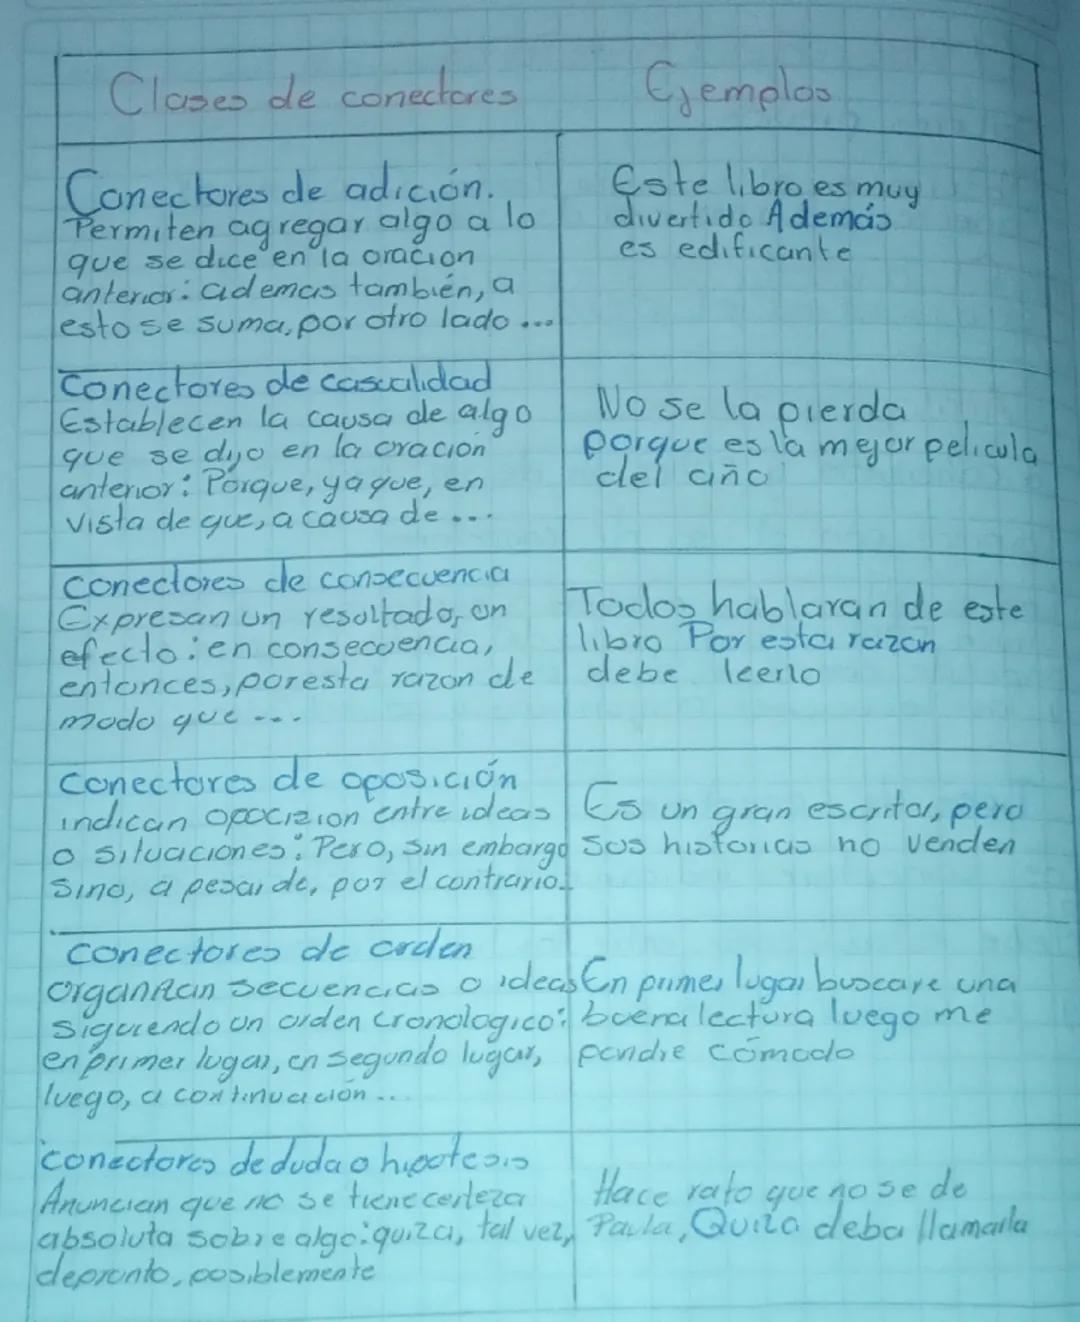 Clases de conectores
Ejemplos
Conectores de adición.
Permiten agregar algo a lo
que se dice en la oracion
anterior: ademas también, a
esto se suma, por otro lado ...
Este libro es muy
divertido Además
es edificante
Conectores de casualidad
Establecen la causa de algo
que se dijo en la oración
anterior: Porque, ya que, en
vista de que, a causa de ...
No se la pierda
porque es la mejor pelicula
del año
conectores de consecuencia
Expresan un resultado, un
efecto: en consecuencia,
entonces, por esta razon de
modo que ...
Todos hablaran de este
libro Por esta razon
debe leerlo
conectores de oposición
indican opocizion entre ideas
o situaciones: Pero, sin embargo
Sino, a pesar de, por el contrario..
Es un gran escritor, pero
sus historias no venden
conectores de orden
organizan secuencias o ideas
siguiendo un orden cronologico:
en primer lugar, en segundo lugar,
luego, a continuación ...
En primer lugar buscare una
buena lectura luego me
pondre cómodo
conectores de duda o hipotesis
Anuncian que no se tiene certeza
absoluta sobre algo: quiza, tal vez,
depronto, posiblemente
Hace rato que no se de
Paula, Quiza deba llamarla